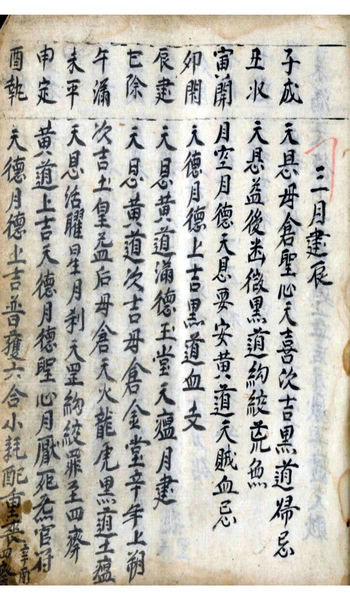 三月建辰
子成 天恩母倉聖心天喜次吉黒道歸忌
丑收 天恩益後幽微黒道絢絞荒蕪
寅開 月空月德天恩要安黄道天賊血忌
卯閉 天德月德上吉黒道血支
辰建 天恩黄道滿德玉堂天瘟月建
巳除 天恩黄道次吉母倉金堂
午滿 次吉玉皇益后母倉天火龍虎黒道土瘟
未平 天恩活曜星月刹天罡絢絞罪至四齊
申定 黄道上吉天德月德聖心月厭死炁官符
酉執 天德月德上吉普護六合小耗